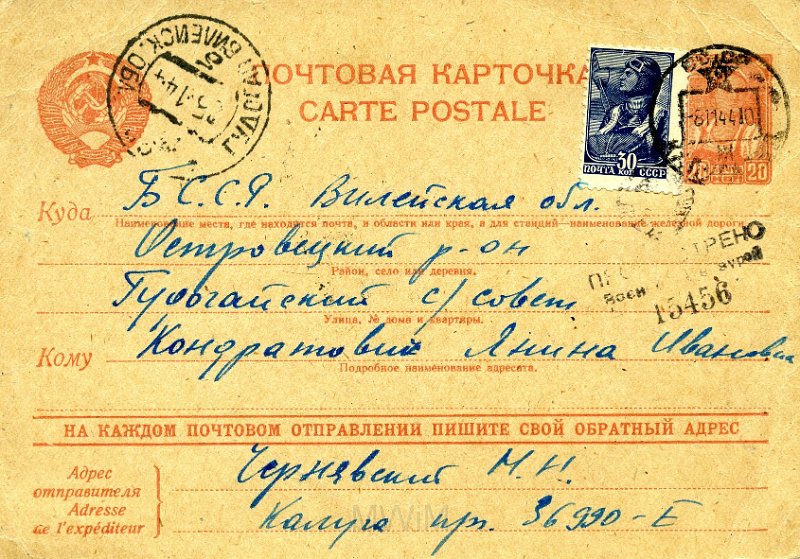 ПОЧТОВАЯ КАРТОЧКА
CARTE POSTALE
30
ПОЧТА КОП СССР
20
Куда
Б.С.С.Р. Вилейская обл.
Наименование места, где находится почта, в области или края, а для станций—наименование железной дороги
Островецкий р-он
Район, село или деревня.
Гудогайский с/совет
Улица, № дома и квартиры.
15456
Кому
Кондратович Янина Ивановна
Подробное наименование адресата.
НА КАЖДОМ ПОЧТОВОМ ОТПРАВЛЕНИИ ПИШИТЕ СВОЙ ОБРАТНЫЙ АДРЕС
Адрес
отправителя
Adresse
de l'expéditeur
Чернявский М.И.
Калуга пр. 36990-Е
MWiM